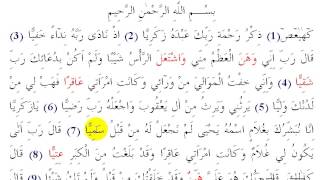 بِسْمِ اللَّهِ الرَّحْمَٰنِ الرَّحِيمِ
كهيعص (1) ذِكْرُ رَحْمَةِ رَبِّكَ عَبْدَهُ زَكَرِيَّا (2) إِذْ نَادَىٰ رَبَّهُ نِدَاءً خَفِيًّا (3)
قَالَ رَبِّ إِنِّي وَهَنَ الْعَظْمُ مِنِّي وَاشْتَعَلَ الرَّأْسُ شَيْبًا وَلَمْ أَكُنْ بِدُعَائِكَ رَبِّ
شَقِيًّا (4) وَإِنِّي خِفْتُ الْمَوَالِيَ مِنْ وَرَائِي وَكَانَتِ امْرَأَتِي عَاقِرًا فَهَبْ لِي مِنْ
لَدُنْكَ وَلِيًّا (5) يَرِثُنِي وَيَرِثُ مِنْ آلِ يَعْقُوبَ وَاجْعَلْهُ رَبِّ رَضِيًّا (6) يَازَكَرِيَّا
إِنَّا نُبَشِّرُكَ بِغُلَامٍ اسْمُهُ يَحْيَى لَمْ نَجْعَلْ لَهُ مِنْ قَبْلُ سَمِيًّا (7) قَالَ رَبِّ أَنَّى
يَكُونُ لِي غُلَامٌ وَكَانَتِ امْرَأَتِي عَاقِرًا وَقَدْ بَلَغْتُ مِنَ الْكِبَرِ عِتِيًّا (8) قَالَ